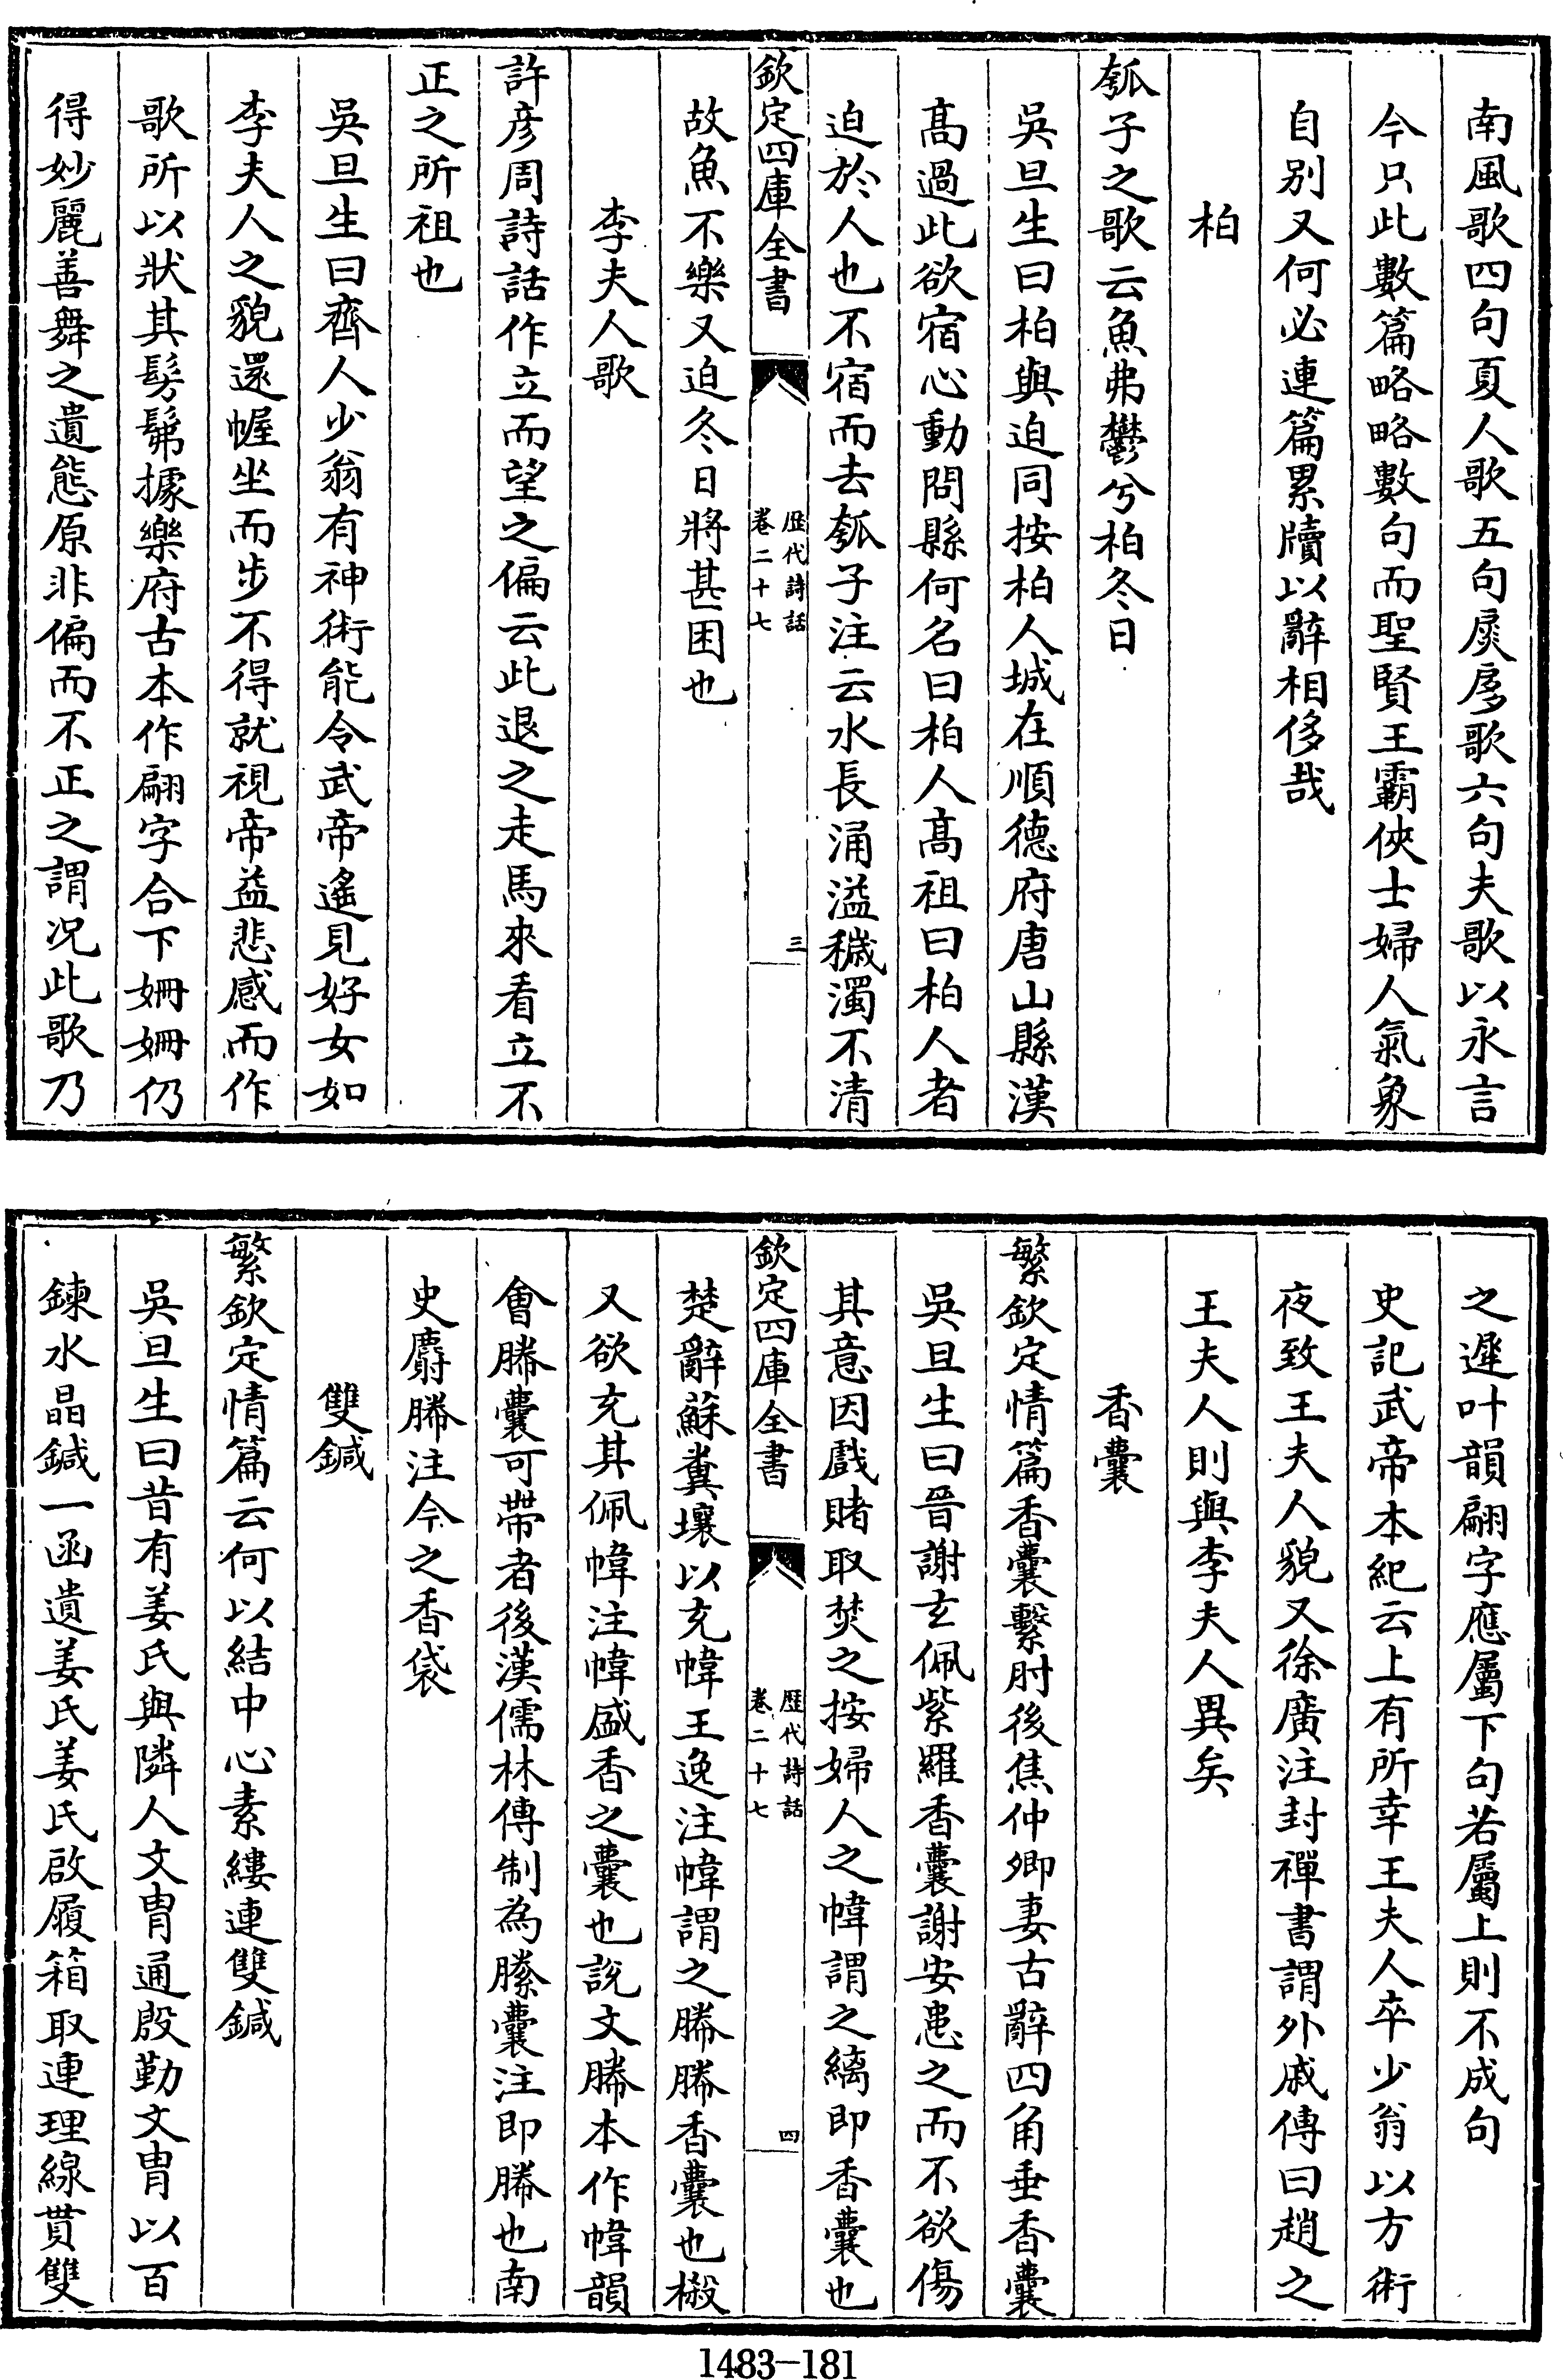 南風歌四句夏人歌五句扊扅歌六句夫歌以永言
今只此數篇略略數句而聖賢王霸俠士婦人氣象
自别又何必連篇累牘以辭相侈哉
柏
瓠子之歌云魚弗鬱兮柏冬日
吳旦生曰柏與迫同按柏人城在順德府唐山縣漢
髙過此欲宿心動問縣何名曰柏人髙祖曰柏人者
迫於人也不宿而去瓠子注云水長涌溢穢濁不清
欽定四庫全書
歴代詩話
卷二十七
三
故魚不樂又迫冬日將甚困也
李夫人歌
許彦周詩話作立而望之偏云此退之走馬來看立不
正之所祖也
吳旦生曰齊人少翁有神術能令武帝遙見好女如
李夫人之貌還幄坐而步不得就視帝益悲感而作
歌所以狀其髣髴據樂府古本作翩字合下姍姍仍
得妙麗善舞之遺態原非偏而不正之謂况此歌乃
之遲叶韻翩字應屬下句若屬上則不成句
史記武帝本紀云上有所幸王夫人卒少翁以方術
夜致王夫人貌又徐廣注封禪書謂外戚傳曰趙之
王夫人則與李夫人異矣
香囊
繁欽定情篇香囊繫肘後焦仲卿妻古辭四角垂香囊
吳旦生曰晉謝玄佩紫羅香囊謝安患之而不欲傷
其意因戲賭取焚之按婦人之幃謂之縭即香囊也
欽定四庫全書
歴代詩話
卷二十七
四
楚辭蘇糞壤以充幃王逸注幃謂之幐幐香囊也樧
又欲充其佩幃注幃盛香之囊也說文幐本作幃韻
會幐囊可帶者後漢儒林傳制為縢囊注即幐也南
史麝幐注今之香袋
雙鍼
繁欽定情篇云何以結中心素縷連雙鍼
吳旦生曰昔有姜氏與隣人文胄通殷勤文胄以百
鍊水晶鍼一函遺姜氏姜氏啟履箱取連理線貫雙
1483-181